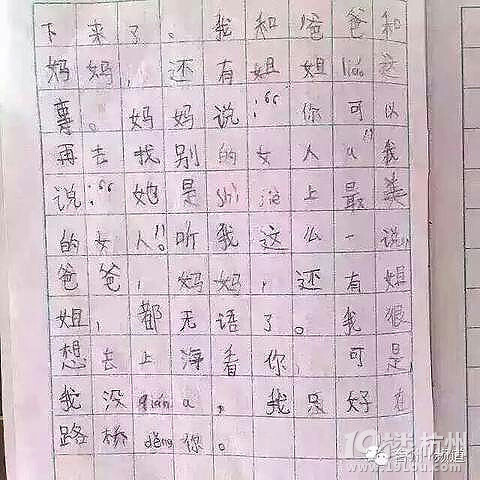 下来了。我和爸爸和
妈妈，还有姐姐liáo这
事。妈妈说：“你可以
再去找别的女人a”我
说：“她是shì jiè上最美
的女人”。听我这么一说，
爸爸，妈妈，还有姐
姐，都无语了。我狠
想去上海看你，可是
我没qián a，我只好在
路桥děng你。
19楼杭州
www.19lou.com